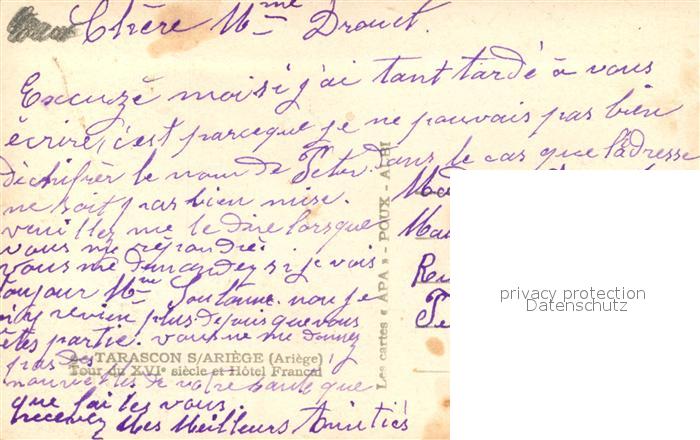 Chère Mme Drouet.
Excuzé moi si j'ai tant tardé a vous
écrire, c'est parceque je ne pouvais pas bien
déchifrer le nom de Peter. dans le cas que l'adresse
ne soit pas bien mise.
veuillez me le dire lorsque
vous me répondré.
vous me demandez si je vois
toujour Mme non je
n'y revien plus depuis que vous
êtes partie. vous ne me donnez
pas des
nouvelles de votre santé que
que fai tes vous.
recevez Mes Meilleurs Amitiés
TARASCON S/ARIÈGE (Ariège)
Tour du XVIe siècle et Hôtel Françal
Les cartes « APA » - POUX - ALBI
privacy protection
Datenschutz